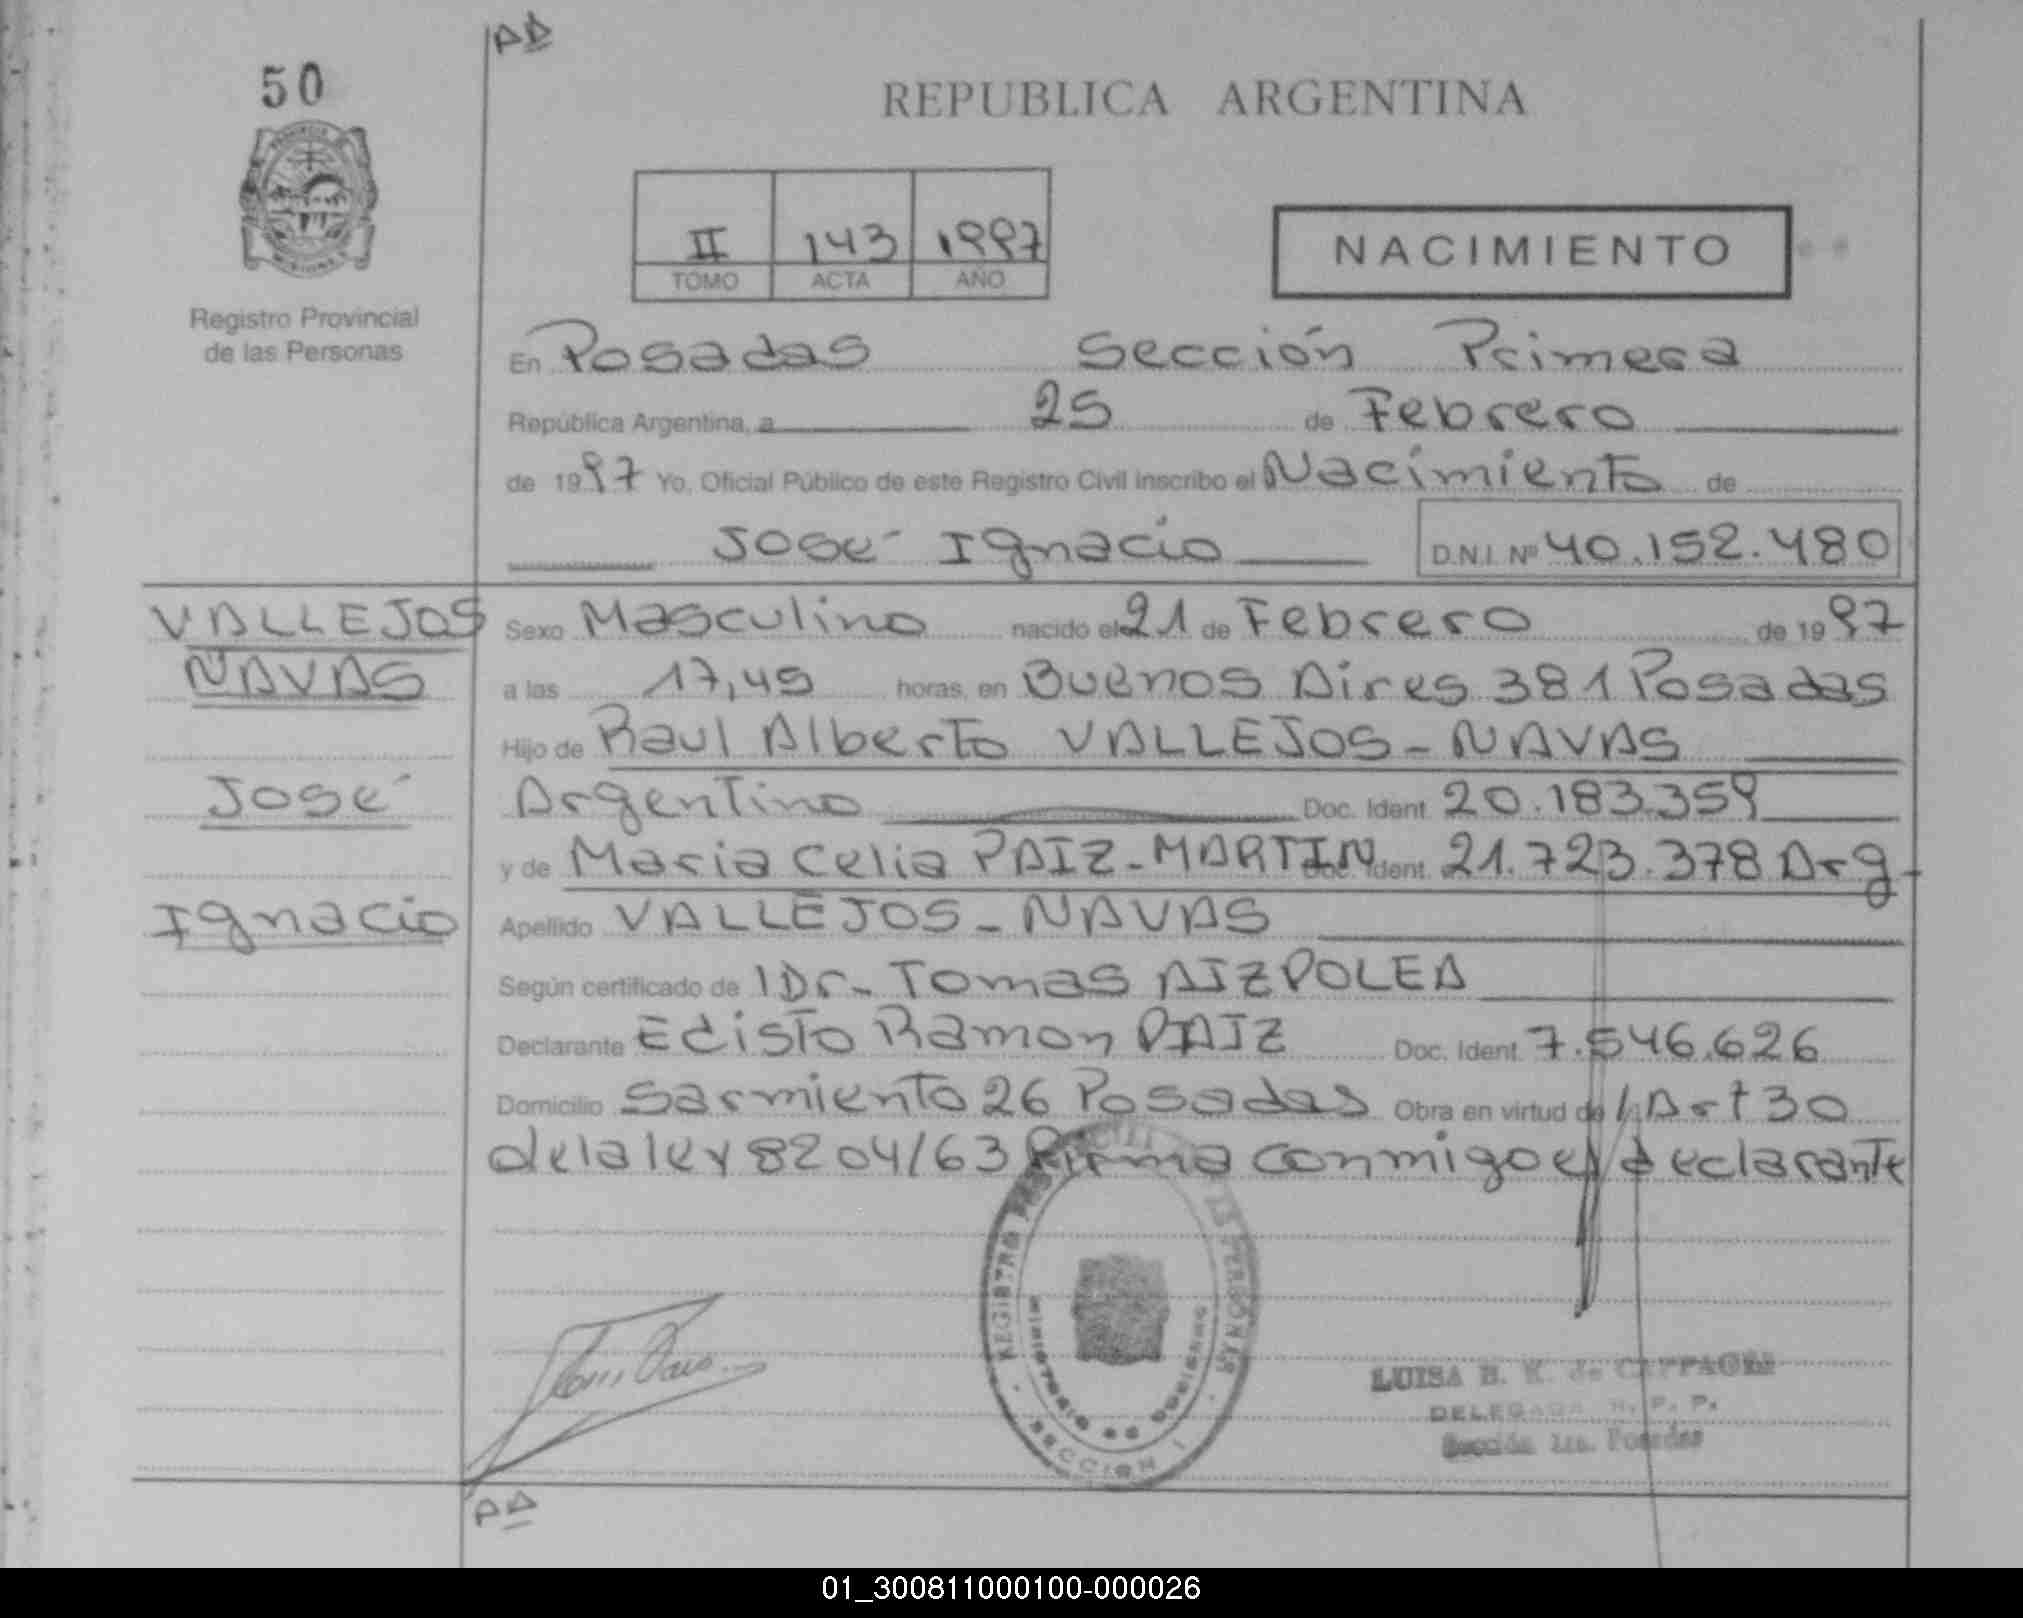 AD
50
REPUBLICA ARGENTINA
II 143 1997
TOMO ACTA AÑO
NACIMIENTO
Registro Provincial
de las Personas
En Posadas Sección Primera
República Argentina, a 25 de Febrero
de 1997 Yo, Oficial Público de este Registro Civil inscribo el Nacimiento de
José Ignacio D.N.I. Nº 40.152.480
VALLEJOS
NAVAS
José
Ignacio
Sexo Masculino nacido el 21 de Febrero de 1997
a las 17,45 horas, en Buenos Aires 381 Posadas
Hijo de Raul Alberto VALLEJOS-NAVAS
Argentino Doc. Ident. 20.183.359
y de Maria Celia PAIZ-MARTIN Doc. Ident. 21.723.378 Arg-
Apellido VALLEJOS-NAVAS
Según certificado de 1Dr- Tomas
Declarante Edisto Ramon PAIZ Doc. Ident. 7.546.626
Domicilio Sarmiento 26 Posadas Obra en virtud de Art 30
de la ley 8204/63 Firma conmigo el declarante
REGISTRO DE LAS PERSONAS
MINISTERIO DE GOBIERNO
SECCION I
LUISA B. K. de
DELEGADA R. P. P.
Sección 1ra. Posadas
AD
01_300811000100-000026